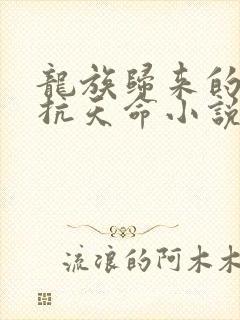 龍族歸來的
抗天命小説
流浪的阿木木